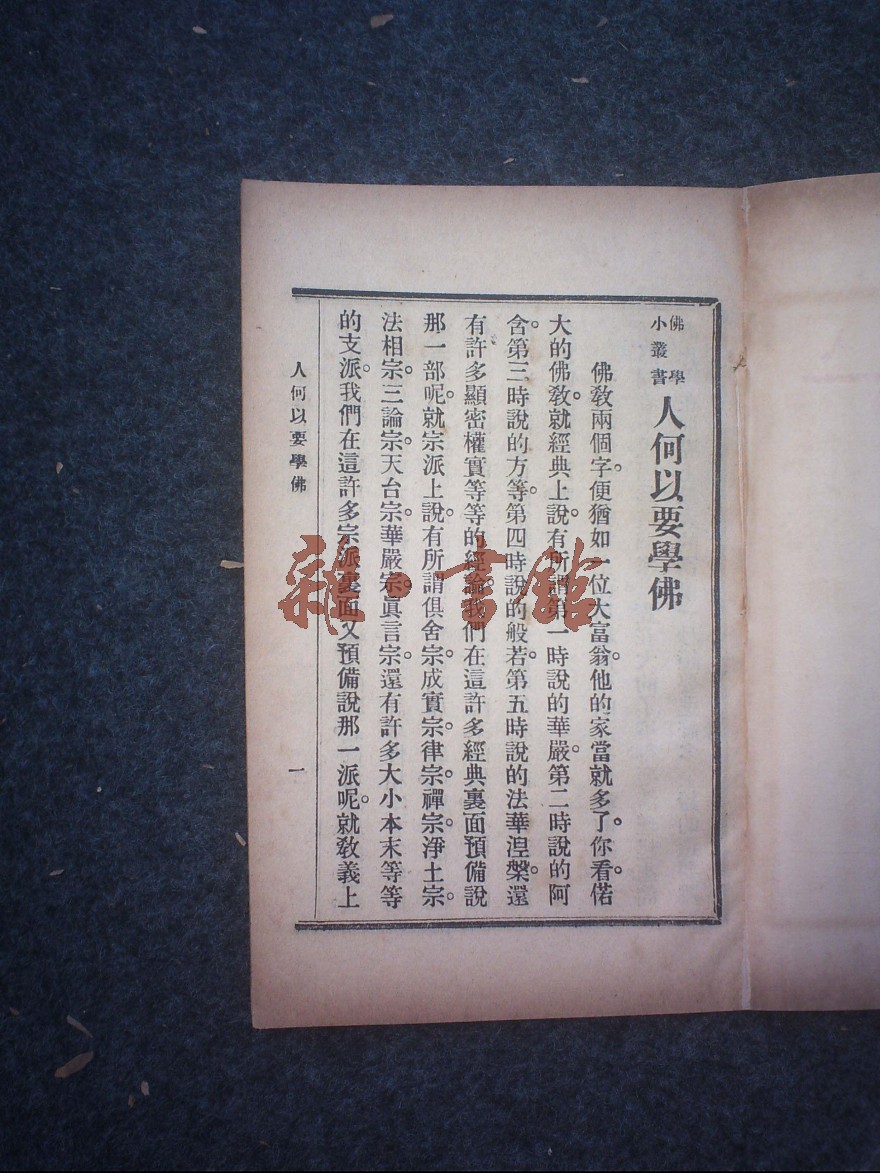 佛學
小叢書
人何以要學佛
佛教兩個字。便猶如一位大富翁。他的家當就多了。你看。偌
大的佛教。就經典上說。有所謂第一時說的華嚴。第二時說的阿
含。第三時說的方等。第四時說的般若。第五時說的法華湼槃。還
有許多顯密權實等等的經論。我們在這許多經典裏面預備說
那一部呢。就宗派上說。有所謂俱舍宗。成實宗。律宗。禪宗。淨土宗。
法相宗。三論宗。天台宗。華嚴宗。眞言宗。還有許多大小本末等等
的支派。我們在這許多宗派裏面又預備說那一派呢。就教義上
人何以要學佛
一
雜·書館